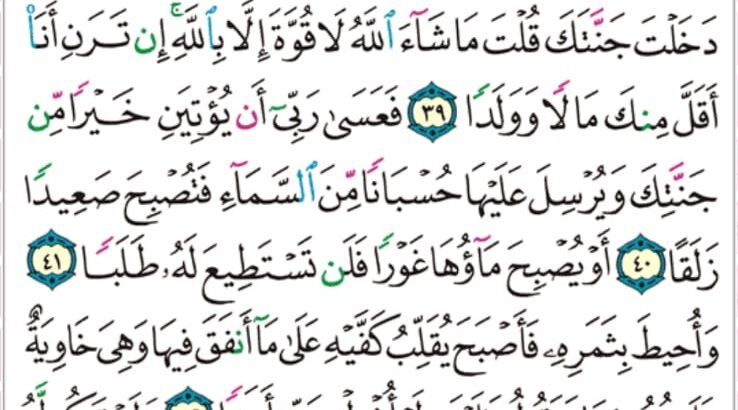 دَخَلْتَ جَنَّتَكَ قُلْتَ مَا شَآءَ ٱللَّهُ لَا قُوَّةَ إِلَّا بِٱللَّهِ ۚ إِن تَرَنِ أَنَا۠
أَقَلَّ مِنكَ مَالًا وَوَلَدًا ٣٩ فَعَسَىٰ رَبِّىٓ أَن يُؤْتِيَنِ خَيْرًا مِّن
جَنَّتِكَ وَيُرْسِلَ عَلَيْهَا حُسْبَانًا مِّنَ ٱلسَّمَآءِ فَتُصْبِحَ صَعِيدًا
زَلَقًا ٤٠ أَوْ يُصْبِحَ مَآؤُهَا غَوْرًا فَلَن تَسْتَطِيعَ لَهُۥ طَلَبًا ٤١
وَأُحِيطَ بِثَمَرِهِۦ فَأَصْبَحَ يُقَلِّبُ كَفَّيْهِ عَلَىٰ مَآ أَنفَقَ فِيهَا وَهِىَ خَاوِيَةٌ